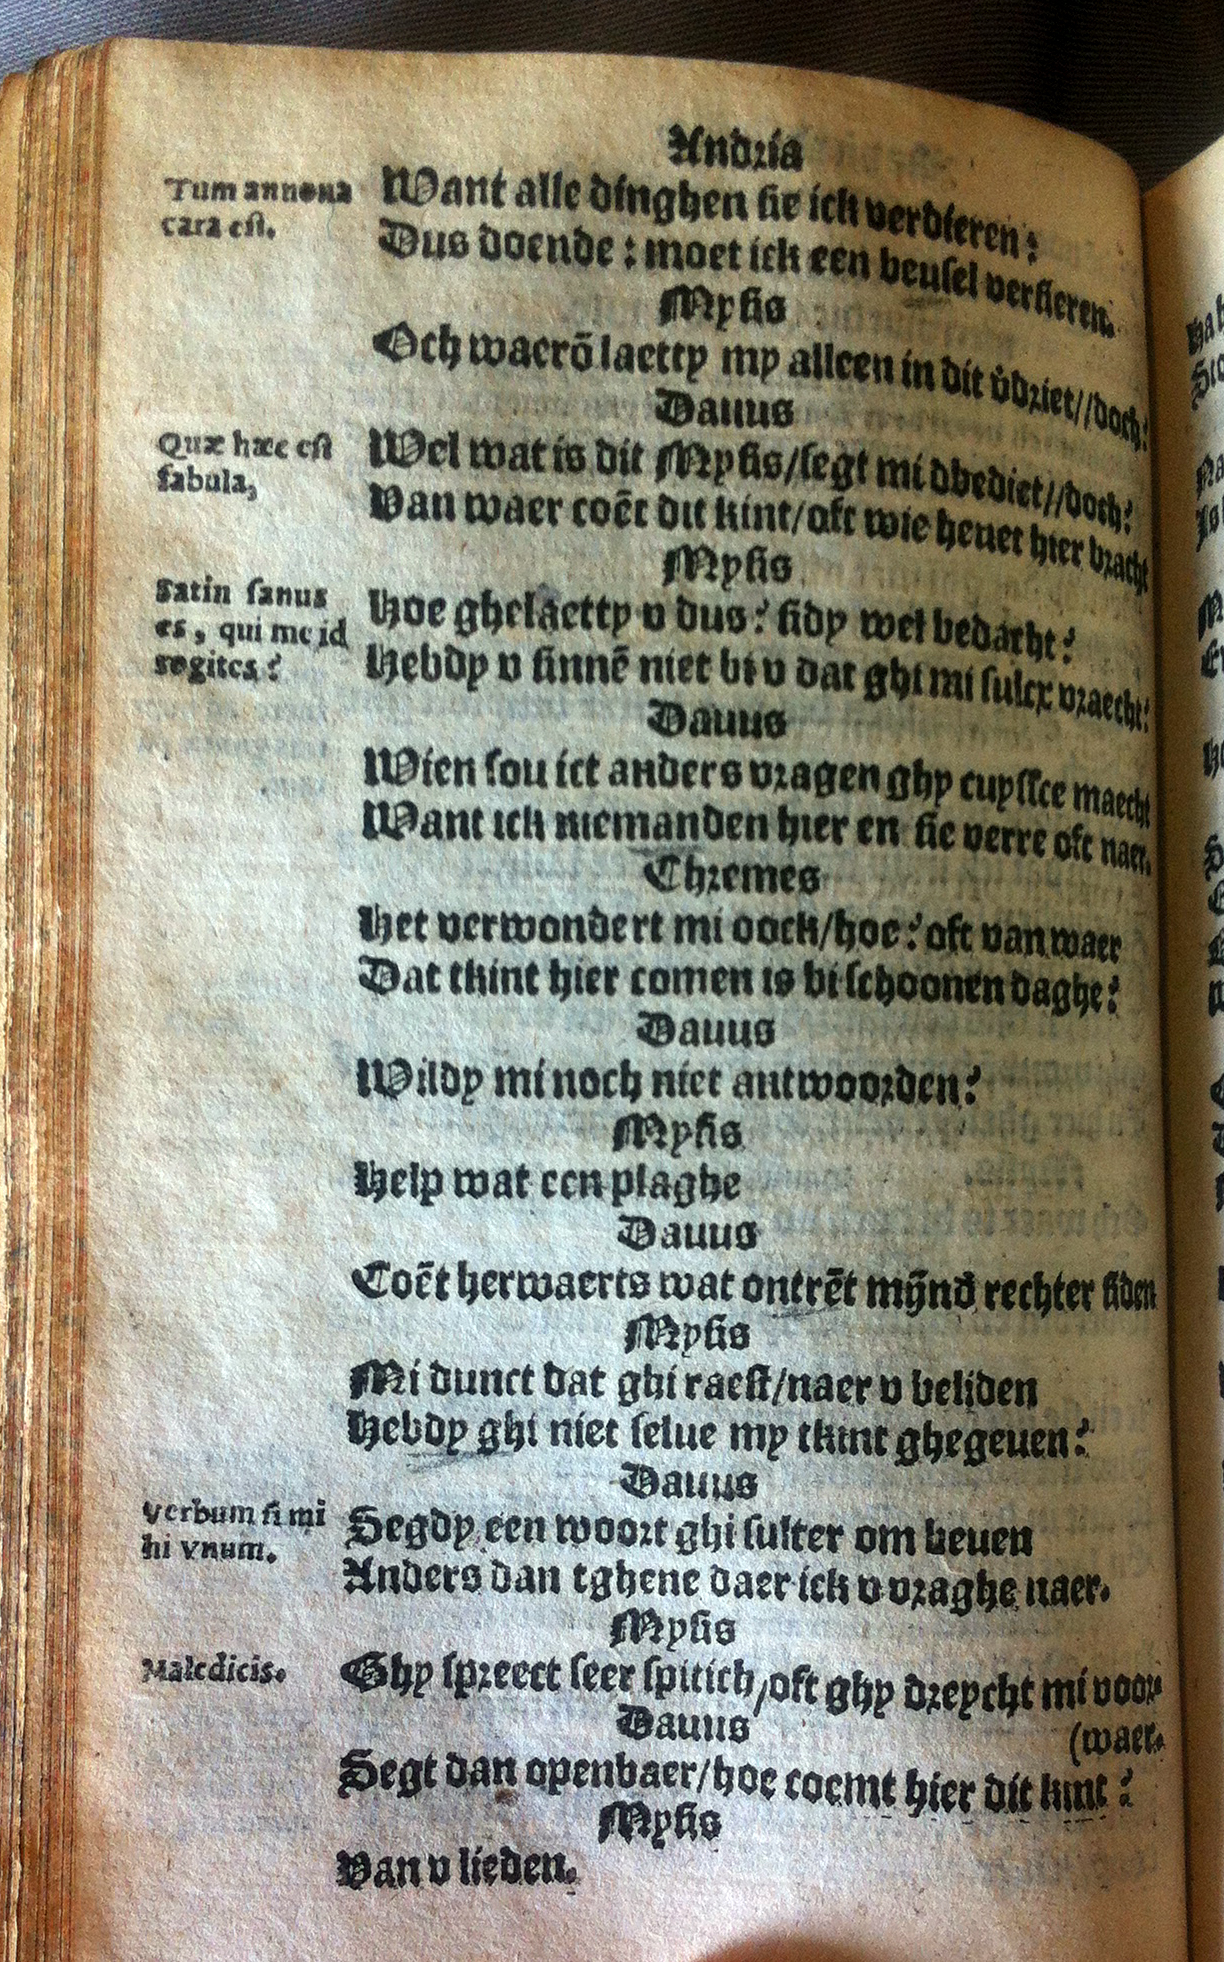 Andria
Tum annona
cara est.
Want alle dinghen sie ick verdieren:
Dus doende: moet ick een beusel versieren.
Mysis
Och waerō laetty my alleen in dit v̄driet//doch?
Dauus
Quæ hæc est
fabula,
Wel wat is dit Mysis/segt mi dbediet//doch?
Van waer coēt dit kint/oft wie heuet hier bracht
Mysis
Satin sanus
es, qui me id
rogites?
Hoe ghelaetty v dus? sidy wel bedacht?
Hebdy v sinnē niet bi v dat ghi mi sulcx vraecht?
Dauus
Wien sou ict anders vragen ghy cuyssce maecht
Want ick niemanden hier en sie verre oft naer.
Chremes
Het verwondert mi oock/hoe? oft van waer
Dat tkint hier comen is bi schoonen daghe?
Dauus
Wildy mi noch niet antwoorden?
Mysis
Help wat een plaghe
Dauus
Coēt herwaerts wat ontrēt mijnd̄ rechter siden
Mysis
Mi dunct dat ghi raest/naer v beliden
Hebdy ghi niet selue my tkint ghegeuen?
Dauus
Verbum si mi
hi vnum.
Segdy een woort ghi sulter om beuen
Anders dan tghene daer ick v vraghe naer.
Mysis
Maledicis.
Ghy spreect seer spitich/oft ghy dreycht mi voor
Dauus
(waer.
Segt dan openbaer/hoe coemt hier dit kint?
Mysis
Van v lieden.